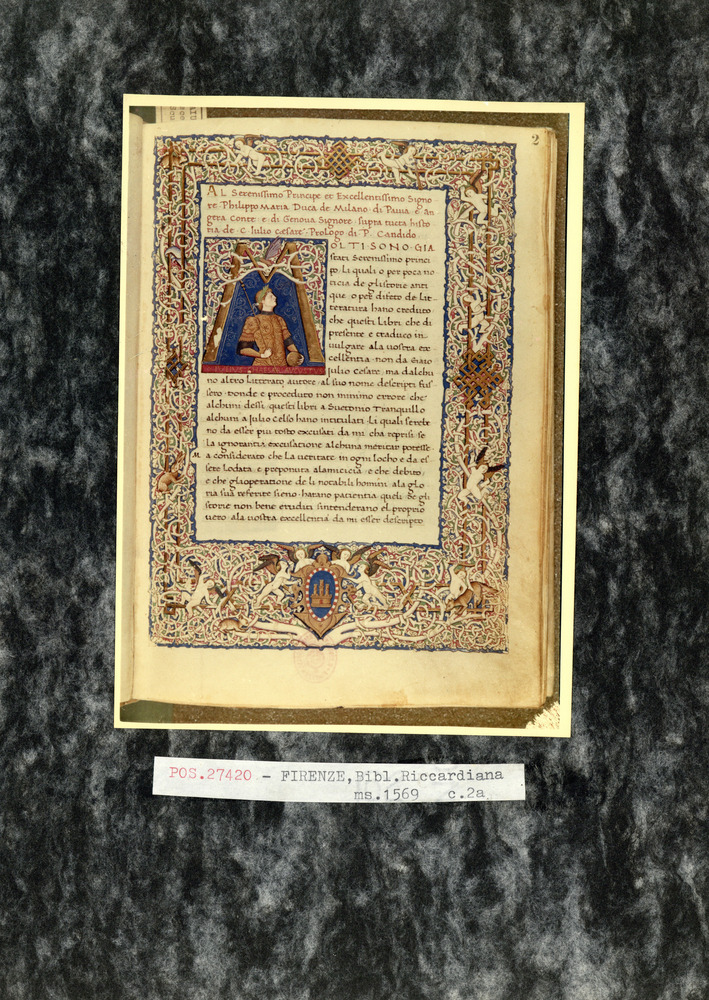 2
AL Serenissimo Principe et Excellentissimo Signo
re Philippo Maria Duca de Milano di Pauia e an
gera Conte e di Genoua Signore supra tucta histo
ria de C. Iulio Cæsare Prologo di P. Candido
OLTI SONO GIA
stati Serenissimo princi
po li quali o per poca no
ticia de glistorie anti
que o per difeto de lit
teratura hano creduto
che questi Libri che di
presente e traduco in
uulgare ala uostra ex
cellentia non da Gaio
Iulio Cesare ma dalchu
no altro Litterato autore al suo nome descripti fus
sero donde e proceduto non minimo errore che
alchuni dessi questi libri a Suetonio Tranquillo
alchuni a Iulio Celso hano intitulati Li quali sereb
no da esser piu tosto excusati da mi cha represi se
la ignorantia excusatione alchuna meritar potesse
Ma considerato che La ueritate in ogni locho e da es
sere lodata e preponuta alamicicia e che debito
e che gli operatione de li notabili homini ala glo
ria sua referite sieno harano patientia queli de gli
storie non bene eruditi sintenderano el proprio
uero ala uostra excellentia da mi esser descripto
POS.27420 - FIRENZE,Bibl.Riccardiana
ms.1569 c.2a